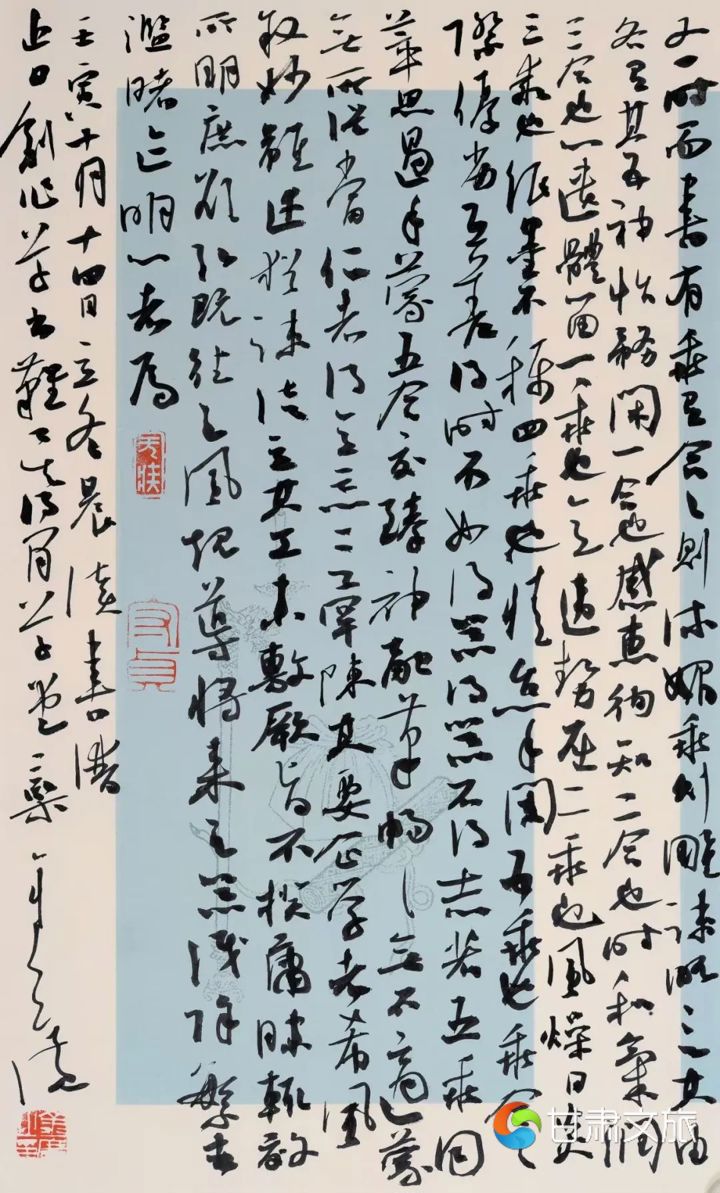 又一時而書有乖有合合則流媚乖則雕疎略言其由
各有其五神怡務閑一合也感惠徇知二合也時和氣潤
三合也心遽體留一乖也意違勢屈二乖也風燥日炎
三乖也紙墨不稱四乖也情怠手闌五乖也乖合之
際優劣互差得時不如得器得器不如得志若五乖同
萃思遏手蒙五合交臻神融筆暢暢無不適蒙
無所從當仁者得意忘言罕陳其要企學者希風
敘妙雖述猶疎徒立其工未敷厥旨不揆庸昧輒效
所明庶欲弘既往之風規導將來之器識除繁去
濫睹迹明心者焉
壬寅十月十四日立冬晨讀書譜
近日創作草書難
甘肃文旅